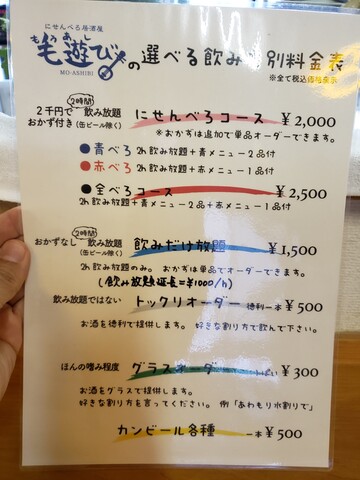 にせんべろ居酒屋
もう あし
毛遊び
MO-ASHIBI
の選べる飲み 別料金表
※全て税込価格表示
2千円で 2時間 飲み放題
おかず付き(缶ビール除く)
にせんべろコース ¥2,000
※おかずは追加で単品オーダーできます。
●青べろ 2h飲み放題+青メニュー2品付
●赤べろ 2h飲み放題+赤メニュー1品付
●全べろコース ¥2,500
2h飲み放題+青メニュー2品+赤メニュー1品付
おかずなし 2時間 飲み放題
(缶ビール除く)
飲みだけ放題 ¥1,500
2h飲み放題のみ。おかずは単品でオーダーできます。
(飲み放題延長=¥1000/h)
飲み放題ではない トックリオーダー 徳利一本 ¥500
お酒を徳利で提供します。 好きな割り方で飲んで下さい。
ほんの嗜み程度 グラスオーダー ¥300
お酒をグラスで提供します。
好きな割り方を言ってください。 例「あわもり水割りで」
カンビール各種 一本 ¥500